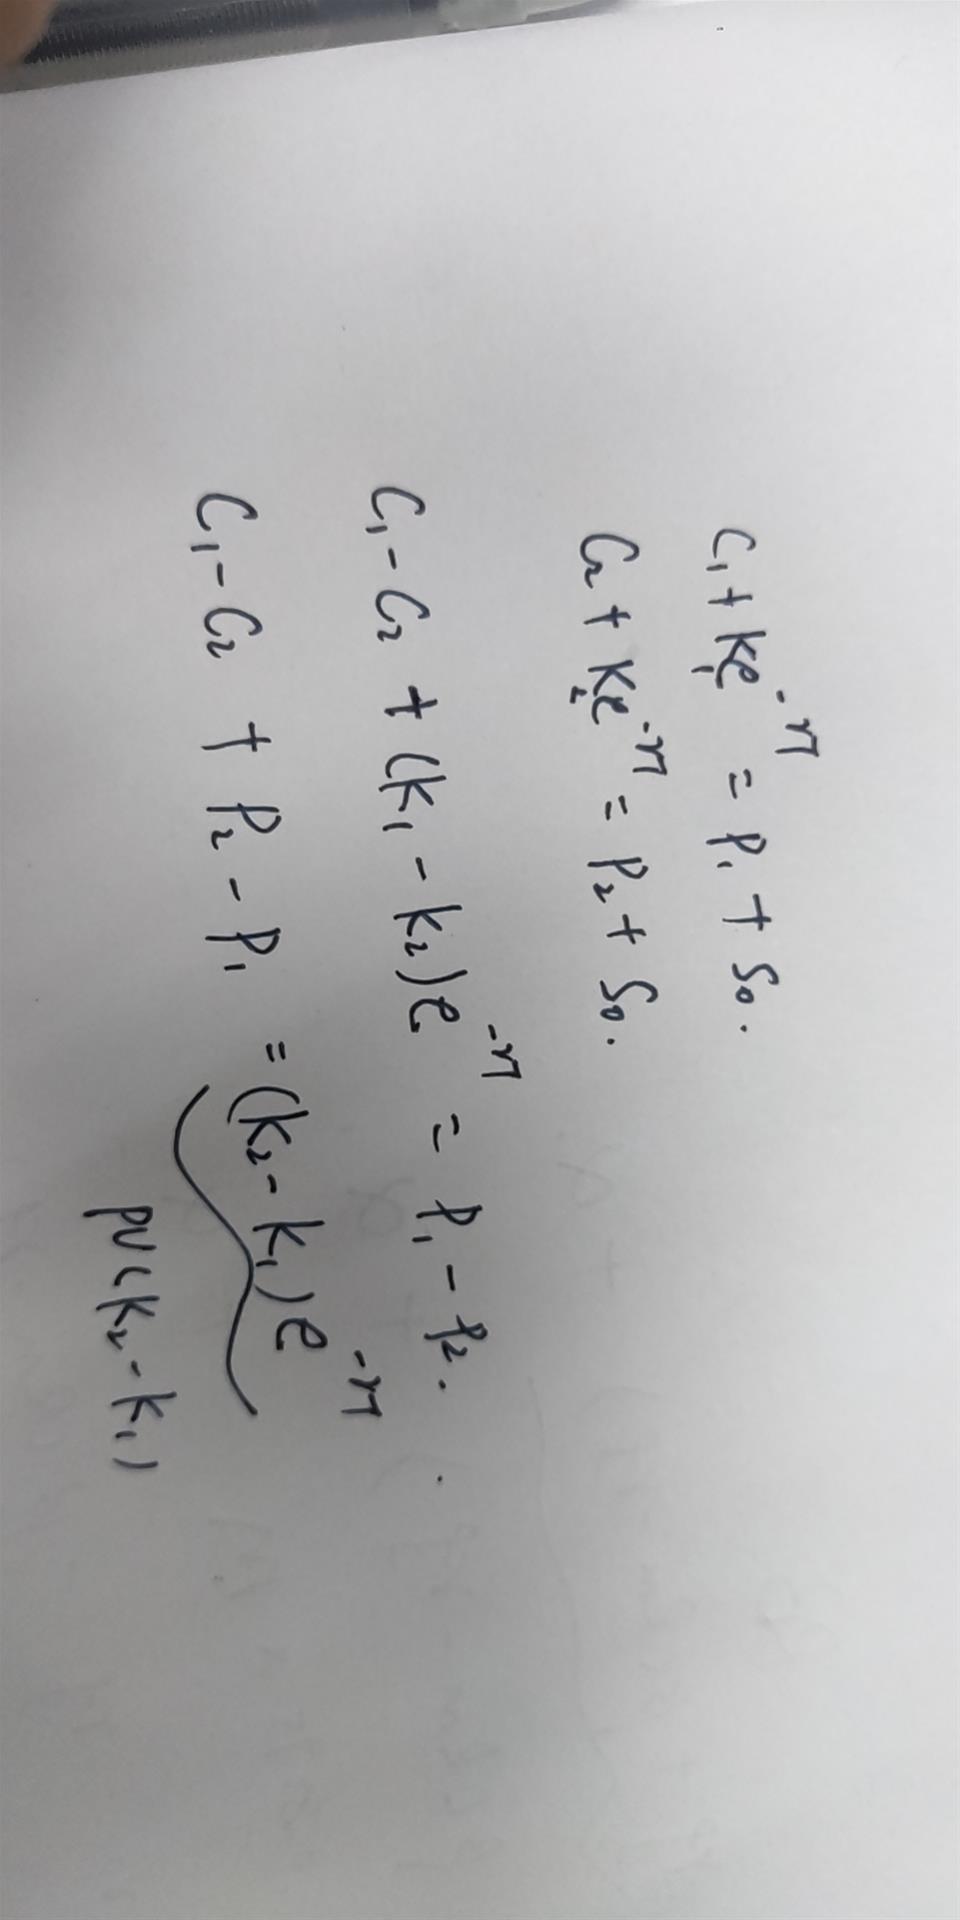 C₁ + K₁e^-rT = P₁ + S₀.
C₂ + K₂e^-rT = P₂ + S₀.
C₁ - C₂ + (K₁ - K₂)e^-rT = P₁ - P₂.
C₁ - C₂ + P₂ - P₁ = (K₂ - K₁)e^-rT
PV(K₂ - K₁)